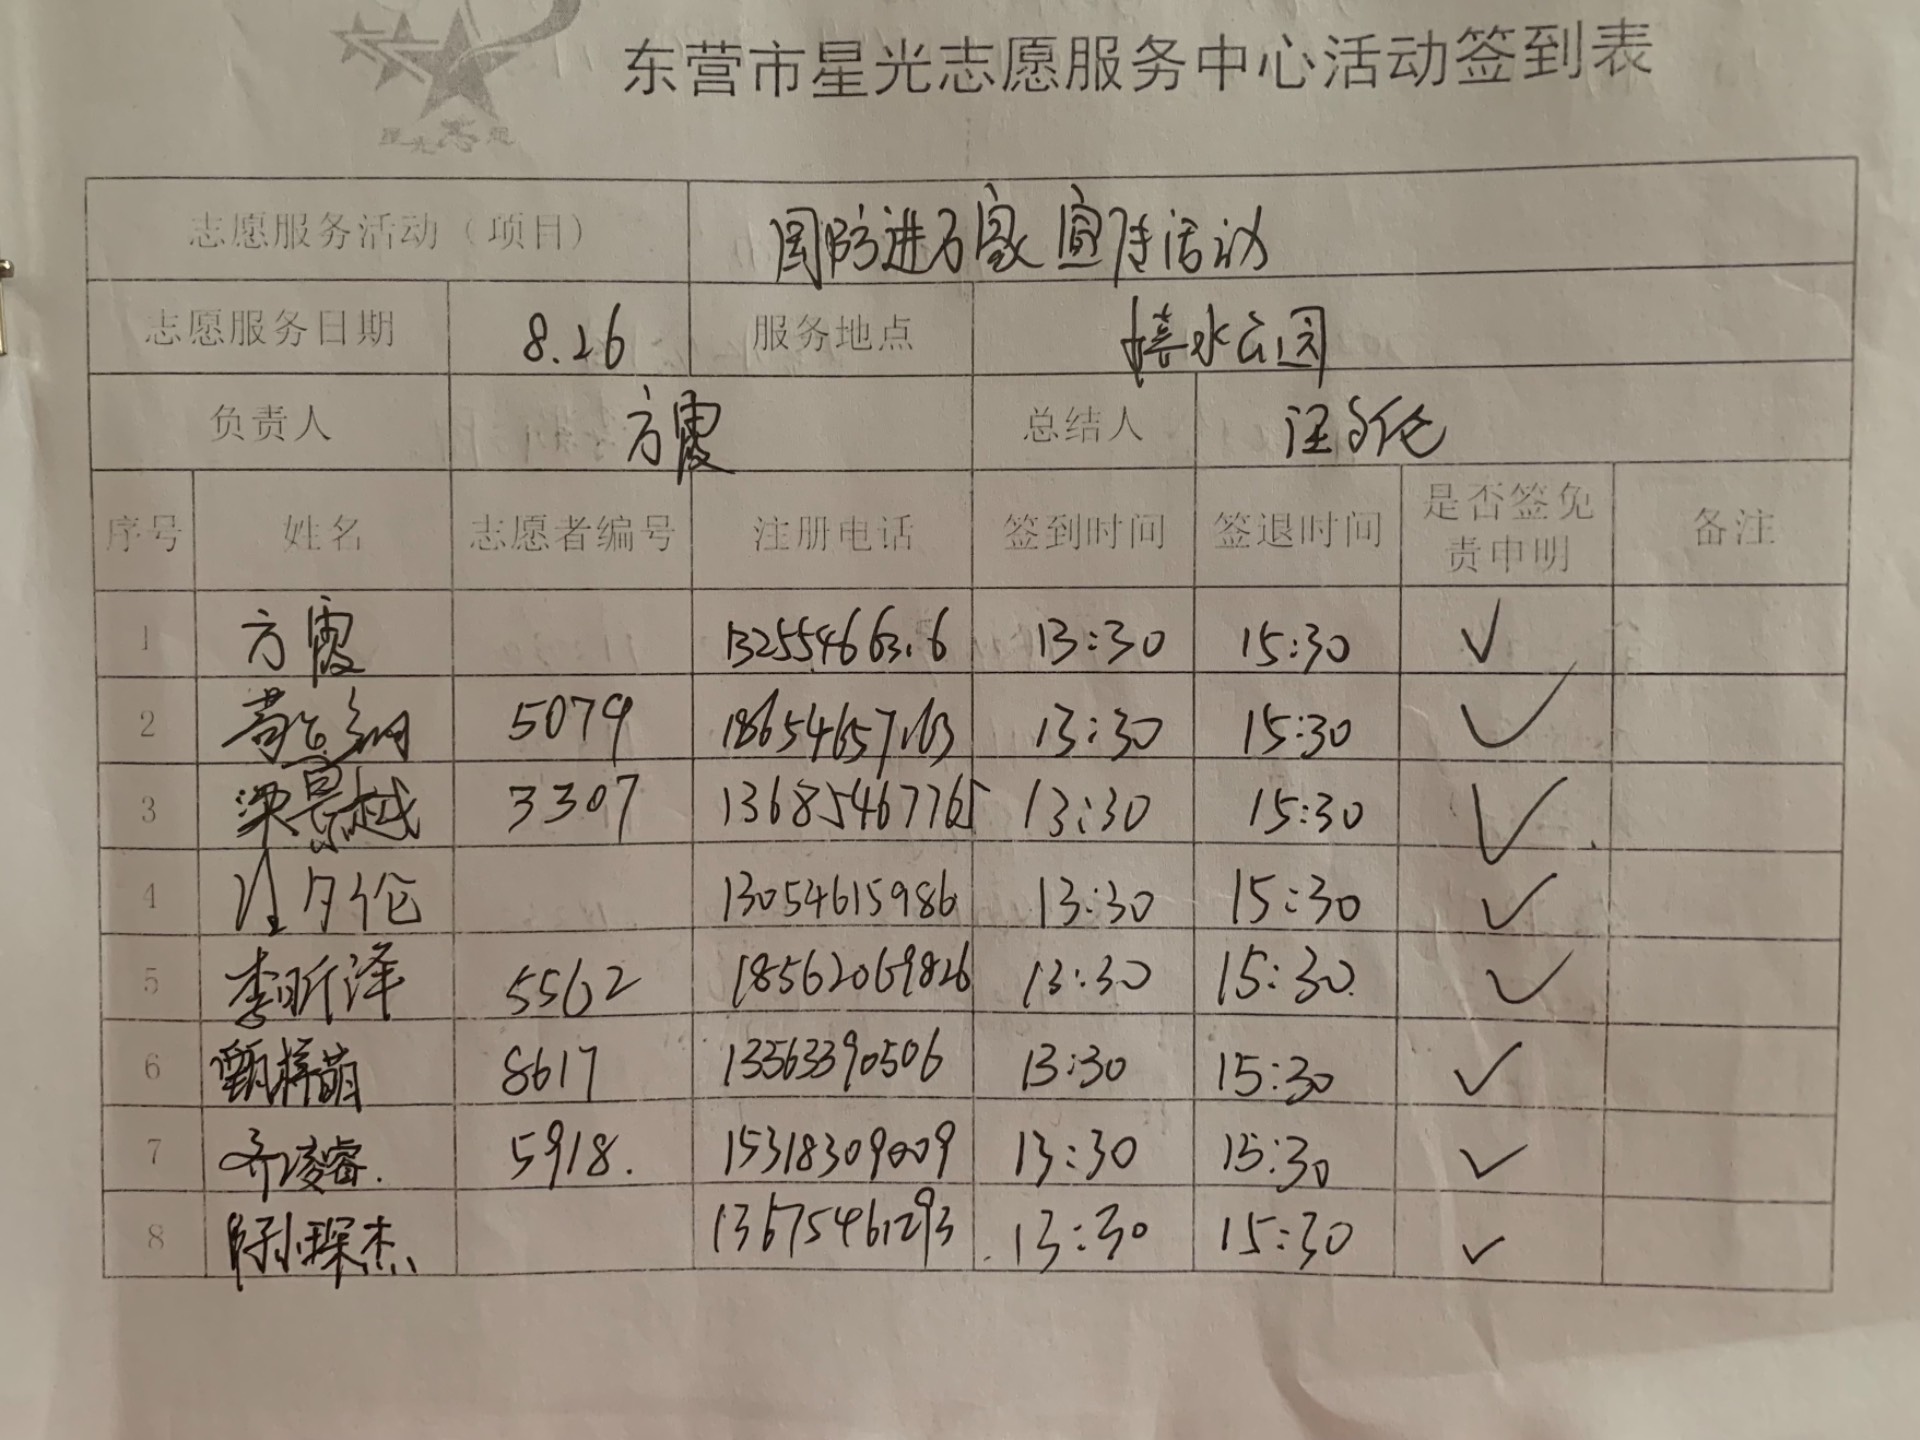 星光志愿
东营市星光志愿服务中心活动签到表
志愿服务活动（项目） 国防进百家宣传活动
志愿服务日期 8.26 服务地点 水公园
负责人 方霞 总结人 汪夕伦
序号 姓名 志愿者编号 注册电话 签到时间 签退时间 是否签免责申明 备注
1 方霞 13:30 15:30 ✓
2 5079 18654657163 13:30 15:30 ✓
3 梁景越 3307 13685467765 13:30 15:30 ✓
4 汪夕伦 13054615986 13:30 15:30 ✓
5 李昕泽 5562 18562069826 13:30 15:30 ✓
6 甄梓萌 8617 13563390506 13:30 15:30 ✓
7 齐凌睿. 5918. 15318309009 13:30 15:30 ✓
8 孙琛杰 13675461293 13:30 15:30 ✓